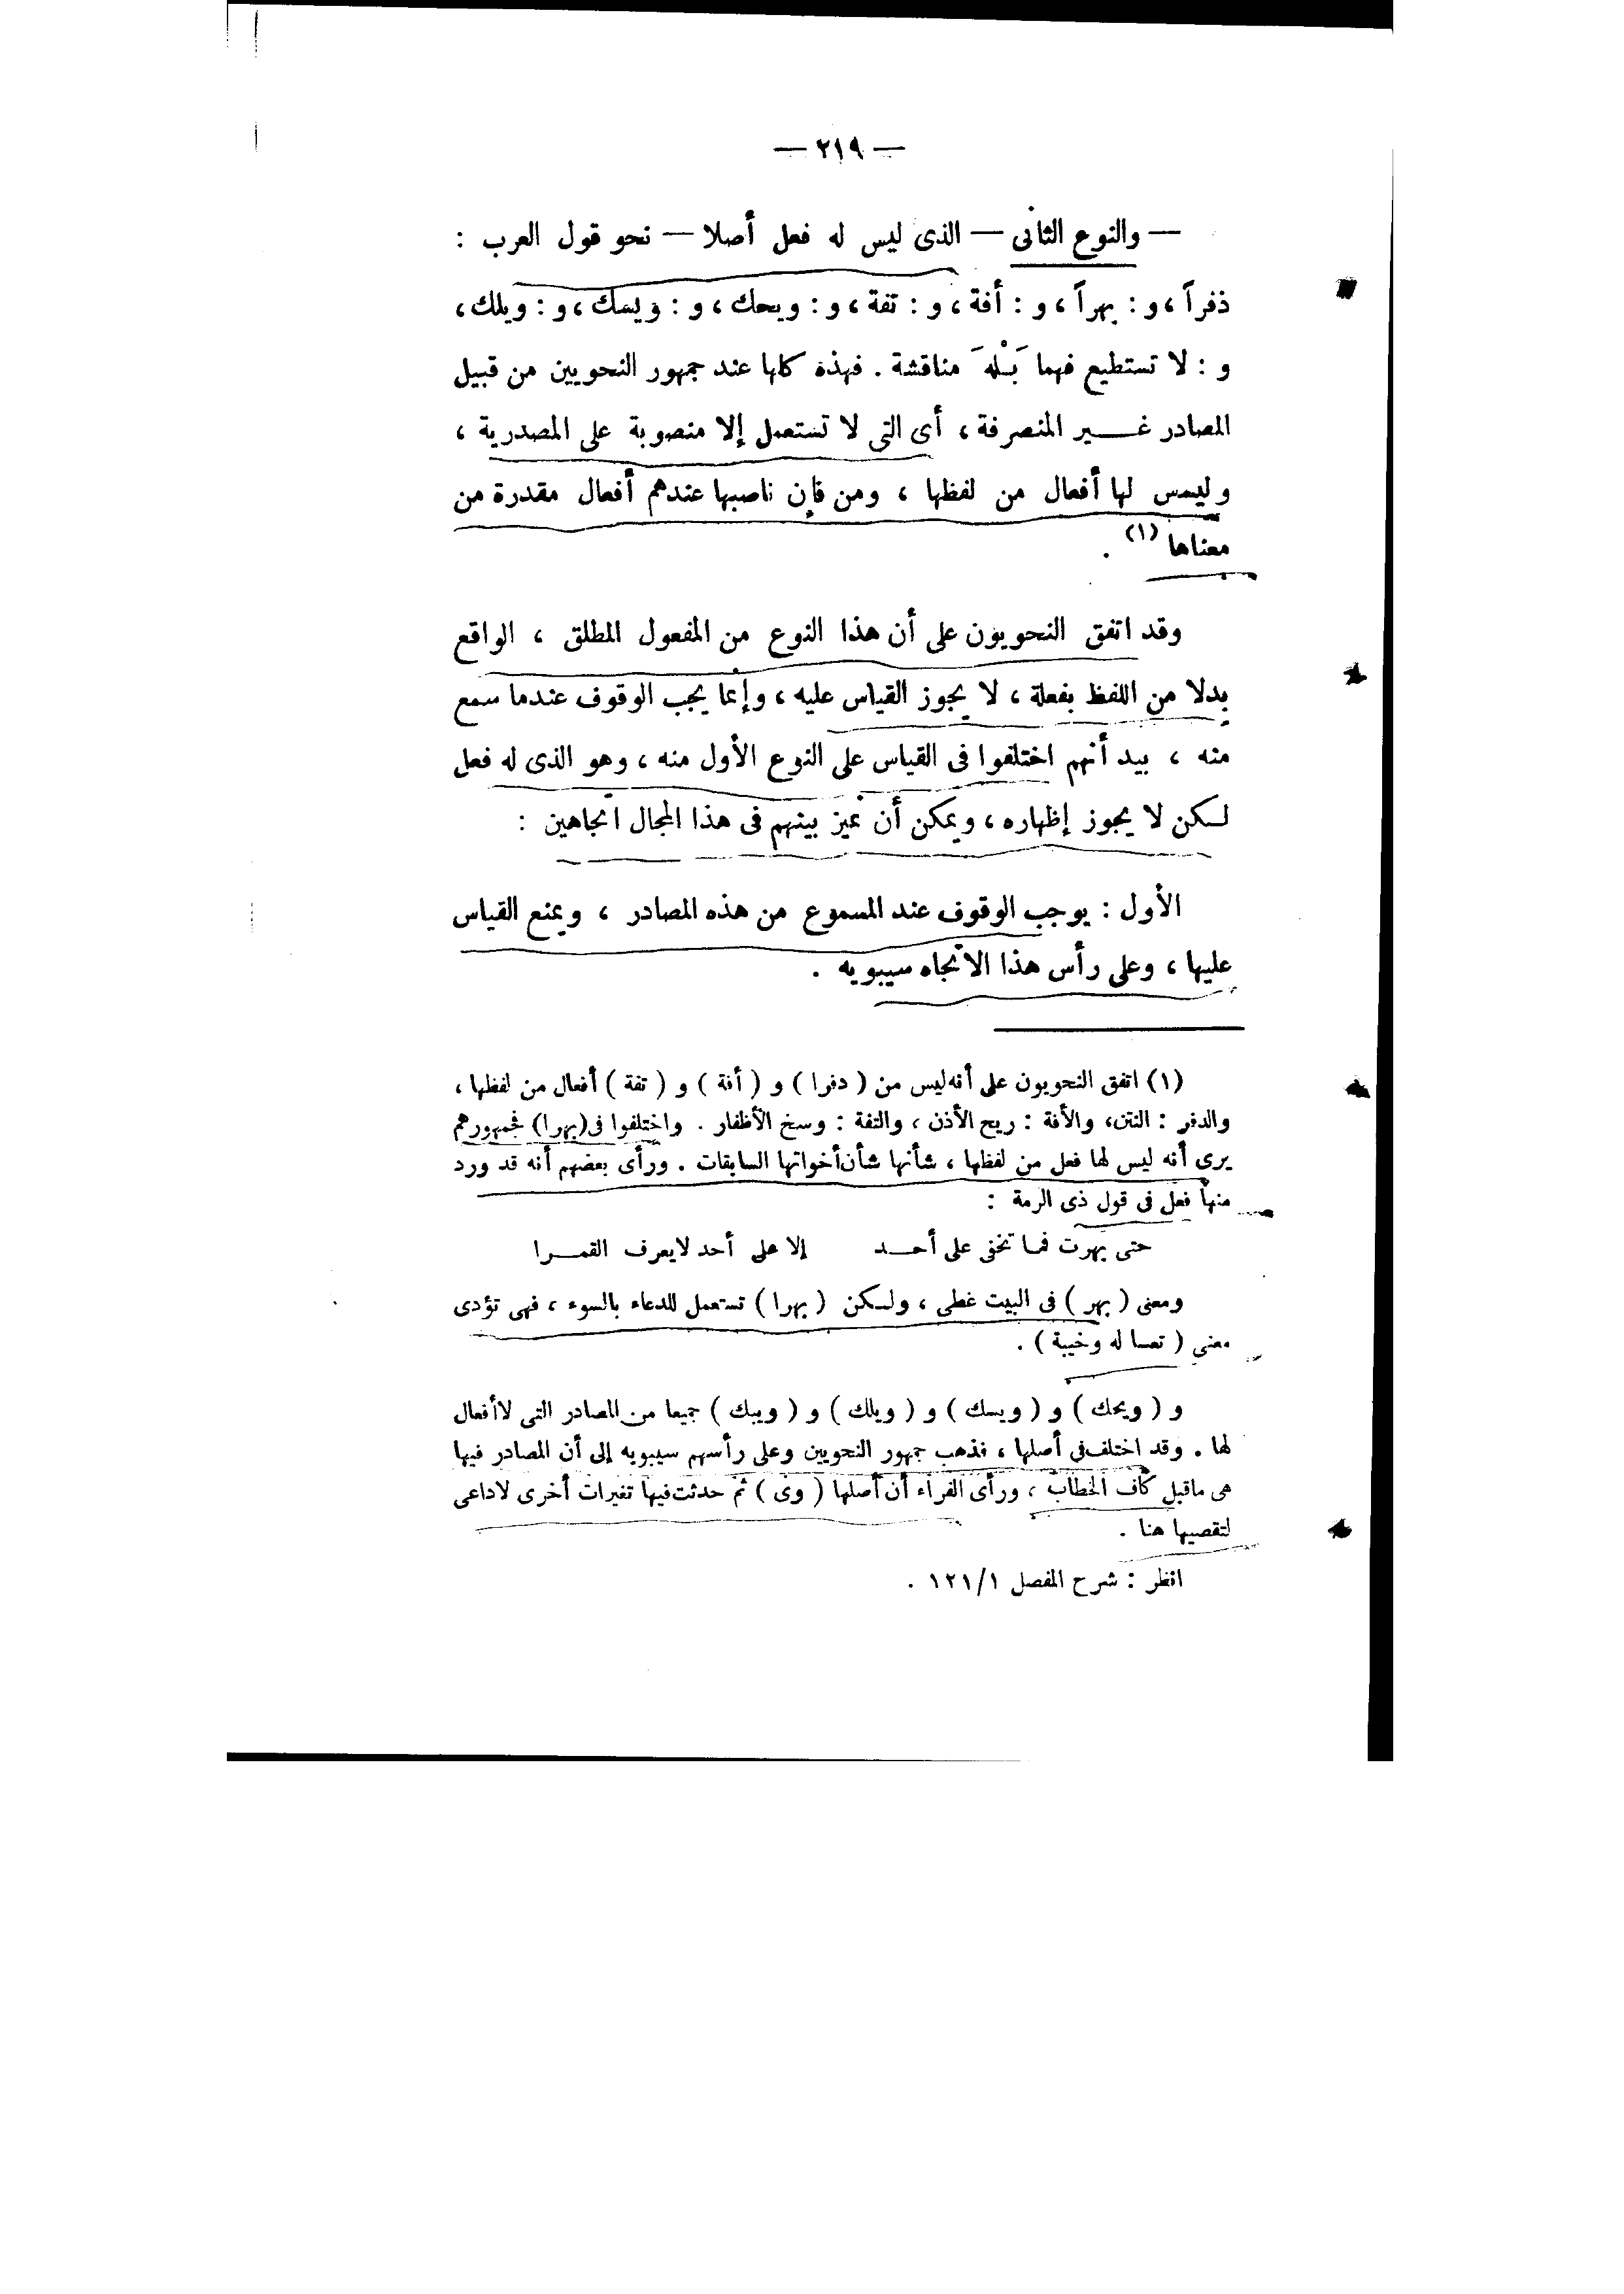 — ٢١٩ —
— والنوع الثانى — الذى ليس له فعل أصلا — نحو قول العرب :
ذفراً ، و : بهراً ، و : أفة ، و : تفة ، و : ويحك ، و : ويسك ، و : ويلك ،
و : لا تستطيع فهما بَلْهَ مناقشة . فهذه كلها عند جمهور النحويين من قبيل
المصادر غير المنصرفة ، أى التى لا تستعمل إلا منصوبة على المصدرية ،
وليس لها أفعال من لفظها ، ومن فإن ناصبها عندهم أفعال مقدرة من
معناها (١) .
وقد اتفق النحويون على أن هذا النوع من المفعول المطلق ، الواقع
بدلا من اللفظ بفعلة ، لا يجوز القياس عليه ، وإنما يجب الوقوف عندما سمع
منه ، بيد أنهم اختلفوا فى القياس على النوع الأول منه ، وهو الذى له فعل
لكن لا يجوز إظهاره ، ويمكن أن نميز بينهم فى هذا المجال اتجاهين :
الأول : يوجب الوقوف عند المسموع من هذه المصادر ، ويمنع القياس
عليها ، وعلى رأس هذا الاتجاه سيبويه .
(١) اتفق النحويون على أنه ليس من ( دفرا ) و ( أفة ) و ( تفة ) أفعال من لفظها ،
والدفر : النتن، والأفة : ريح الأذن ، والتفة : وسخ الأظفار . واختلفوا فى (بهرا) فجمهورهم
يرى أنه ليس لها فعل من لفظها ، شأنها شأن أخواتها السابقات . ورأى بعضهم أنه قد ورد
منها فعل فى قول ذى الرمة :
حتى بهرت فما تخفى على أحد إلا على أحد لايعرف القمرا
ومعنى ( بهر ) فى البيت غطى ، ولكن ( بهرا ) تستعمل للدعاء بالسوء ، فهى تؤدى
معنى ( تعسا له وخيبة ) .
و ( ويحك ) و ( ويسك ) و ( ويلك ) و ( ويبك ) جميعا من المصادر التى لاأفعال
لها . وقد اختلف فى أصلها ، فذهب جمهور النحويين وعلى رأسهم سيبويه إلى أن المصادر فيها
هى ماقبل كاف الخطاب ، ورأى الفراء أن أصلها ( وى ) ثم حدثت فيها تغيرات أخرى لاداعى
لتقصيها هنا .
انظر : شرح المفصل ١٢١/١ .